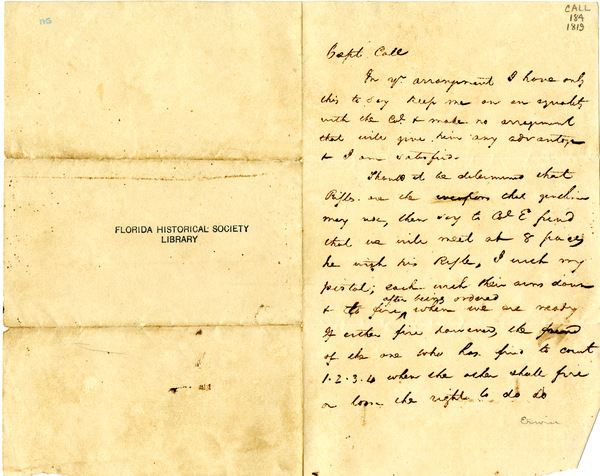 115
CALL
184
1819
FLORIDA HISTORICAL SOCIETY
LIBRARY
Capt Call
In yr arrangement I have only
this to say keep me on an equality
with the Col. & make no arrangement
that will give him any advantage
& I am satisfied.
Should it be determined that
Rifles are the weapons that gentlemen
may use, then say to Col E friend
that we will meet at 8 paces
he with his Rifle, I with my
pistol; each with their arms down
& to fire, after being ordered when we are ready
If either fire the friend
of the one who has fired to count
1.2.3.4 when the other shall fire
or loose the right to do so
Erwin